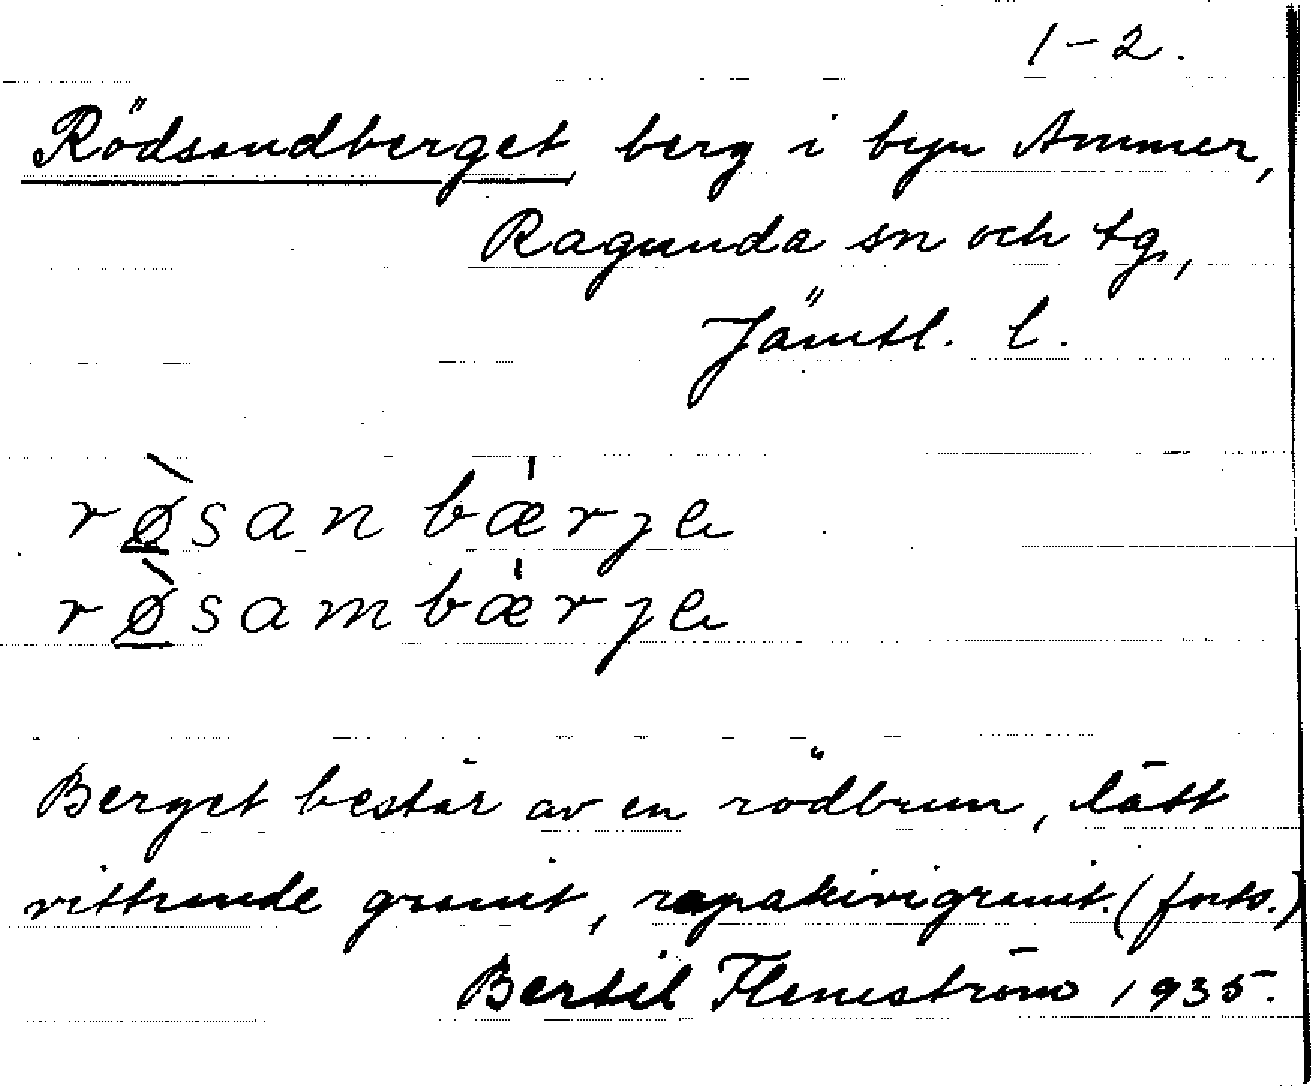 1-2.
Rödsandberget berg i byn Ammer,
Ragunda sn och tg,
Jämtl. l.
rø̀san bǽrjɐ
rø̀sambǽrjɐ
Berget består av en rödbrun, lätt
vittrande granit, rapakivigranit. (forts.)
Bertil Flemström 1935.